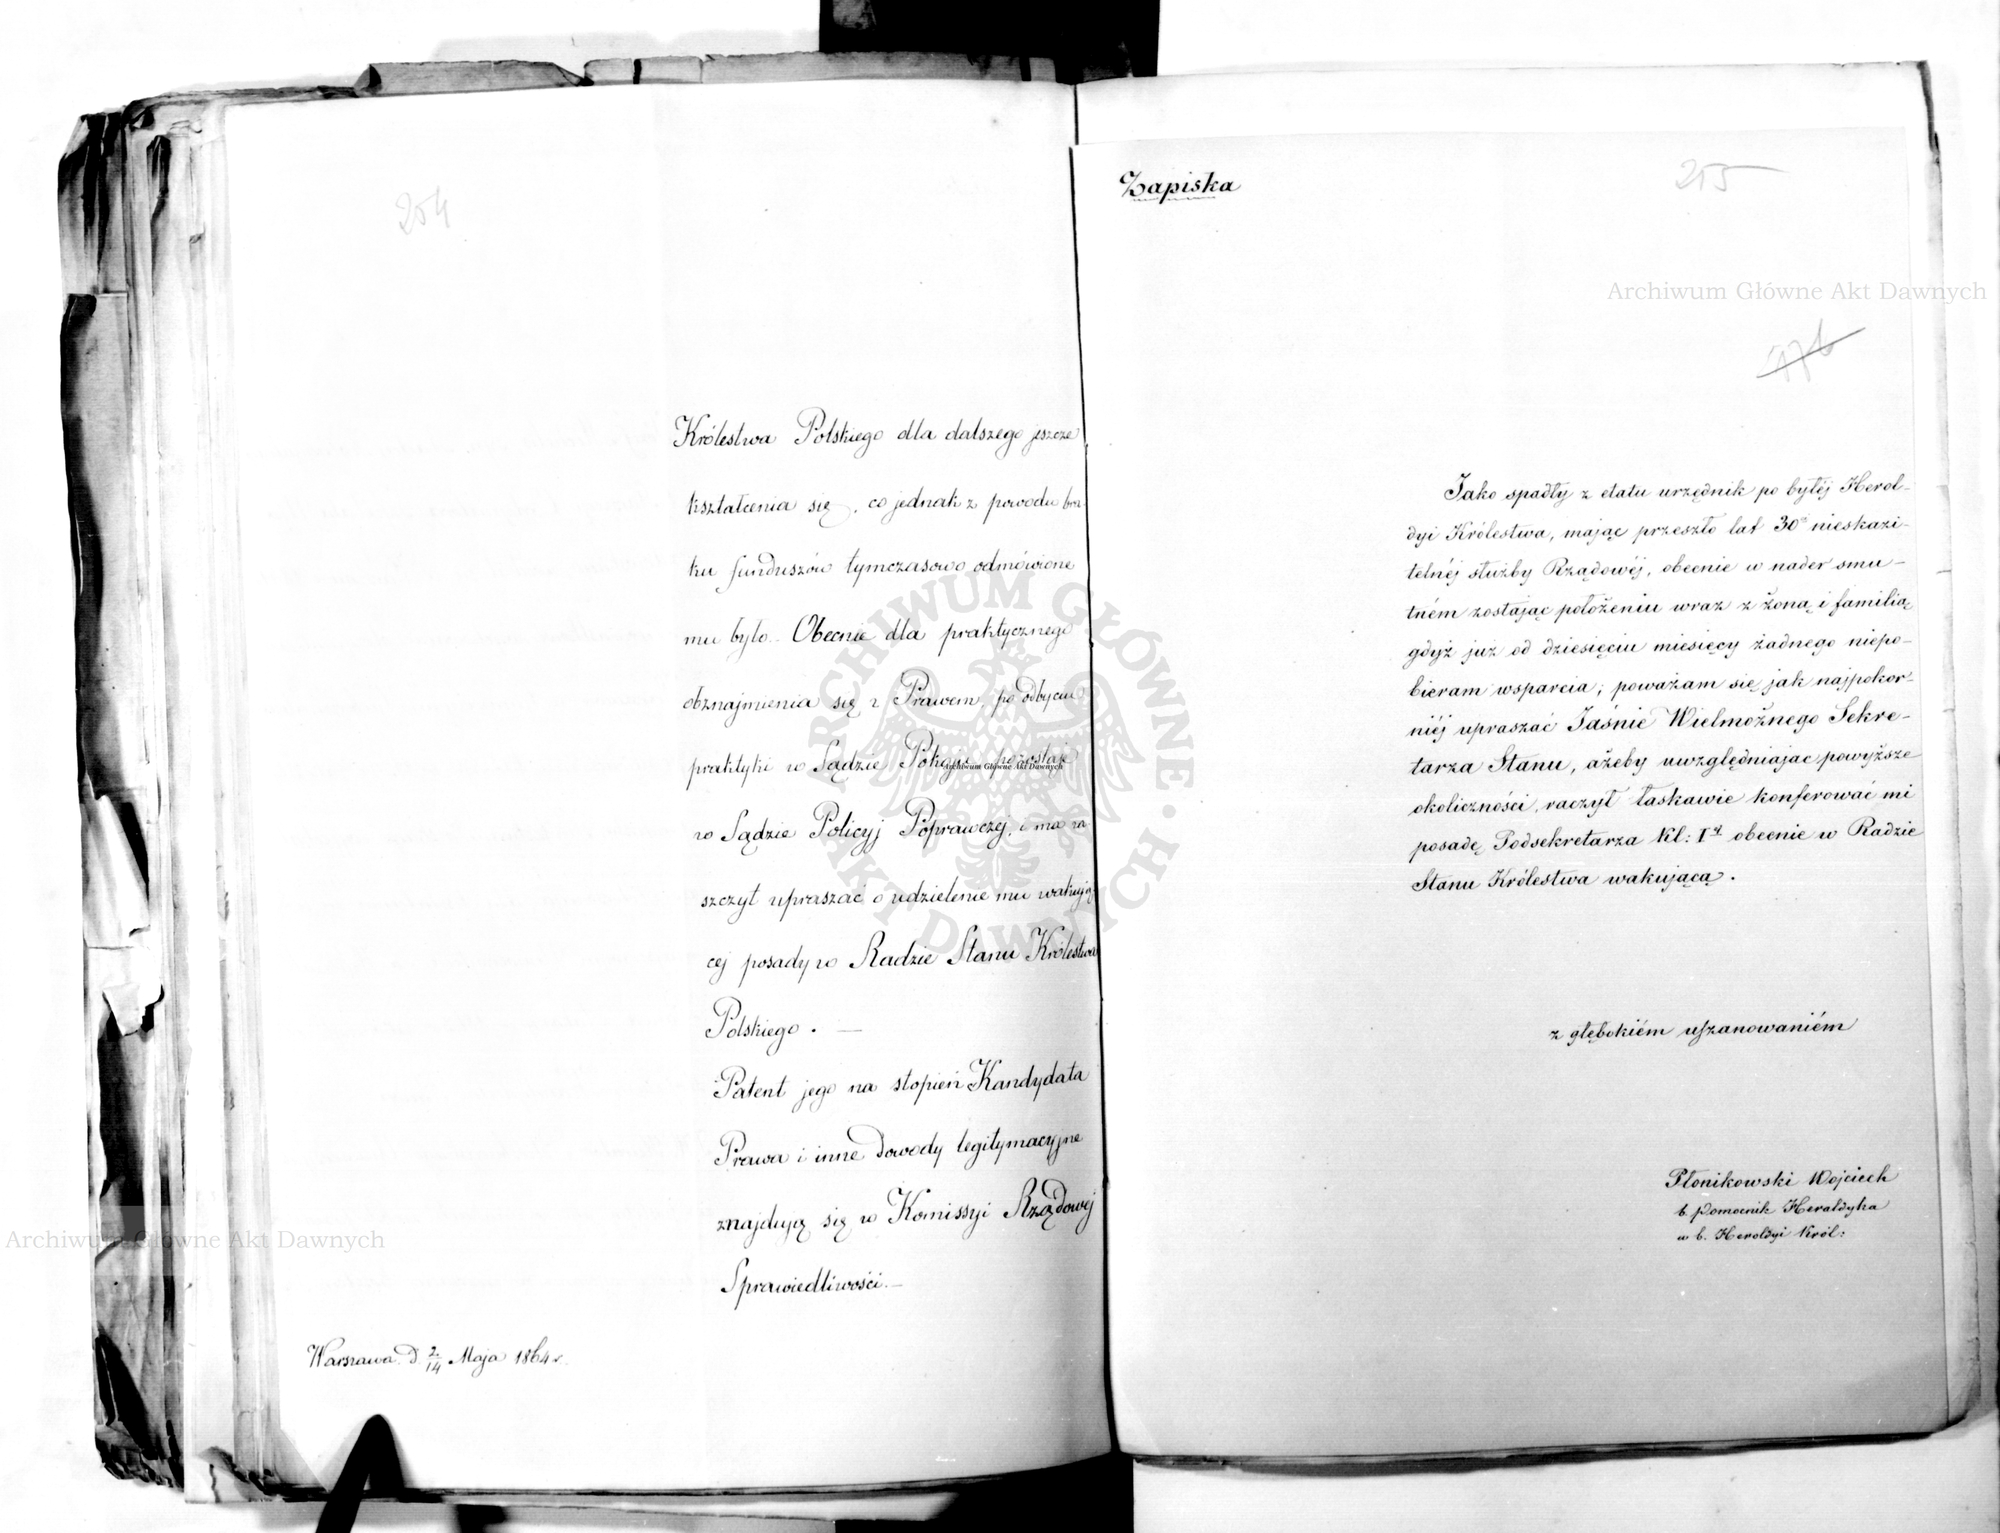 254
Królestwa Polskiego dla dalszego jeszcze
kształcenia się, co jednak z powodu bra-
ku funduszów tymczasowo odmówione
mu było. Obecnie dla praktycznego
obznajmienia się z Prawem, po odbyciu
praktyki w Sądzie Pokoju, pozostaje
w Sądzie Policyj Poprawczej, i ma za-
szczyt upraszać o udzielenie mu wakują-
cej posady w Radzie Stanu Królestwa
Polskiego. —
Patent jego na stopień Kandydata
Prawa i inne dowody legitymacyjne
znajdują się w Komissyi Rządowej
Sprawiedliwości. —
Warszawa d. 2/14 Maja 1864 r.
Zapiska
255
476
Jako spadły z etatu urzędnik po byłéj Herol-
dyi Królestwa, mając przeszło lat 30 nieskazi-
telnéj służby Rządowéj, obecnie w nader smu-
tném zostając położeniu wraz z żoną i familią
gdyż już od dziesięciu miesięcy żadnego niepo-
bieram wsparcia; poważam się jak najpokor-
niéj upraszać Jaśnie Wielmożnego Sekre-
tarza Stanu, ażeby uwzględniając powyższe
okoliczności, raczył łaskawie konferować mi
posadę Podsekretarza Kl: Iéj obecnie w Radzie
Stanu Królestwa wakującą.
z głębokiém uszanowaniém
Płonikowski Wojciech
b. Pomocnik Heraldyka
w b. Heroldyi Król:
Archiwum Główne Akt Dawnych
Archiwum Główne Akt Dawnych
Archiwum Główne Akt Dawnych
ARCHIWUM GŁÓWNE AKT DAWNYCH